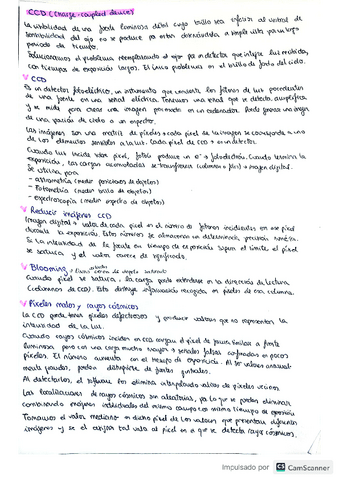 CCD (Charge-coupled device)
La visibilidad de una fuente luminosa débil cuyo brillo sea inferior al umbral de
sensibilidad del ojo no se produce ya estar observándola a simple vista por largo
periodo de tiempo.
Solucionamos el problema reemplazando el ojo por un detector que integre luz recibida,
con tiempos de exposición largos. El único problema es el brillo de fondo del cielo.
CCD
Es un detector fotoeléctrico, un instrumento que convierte los fotones de luz procedentes
de una fuente en una señal eléctrica. Tenemos una señal que se detecta, amplifica
y se mide para crear una imagen por medio de un ordenador. Puede generar una imagen
de una región de cielo o un espectro.
Las imágenes son una matriz de píxeles cada píxel de la imagen se corresponde a uno
de los elementos sensibles a la luz. Cada píxel de CCD es un detector.
Cuando luz incide sobre píxel, fotón produce un e⁻ → fotoelectrón. Cuando termina la
exposición, las cargas acumuladas se transfieren (columna a fila) → imagen digital.
Se utilizan para
- astrometría (medir posiciones de objetos)
- Fotometría (medir brillo de objetos)
- espectroscopía (medir espectro de objetos)
Reducir imágenes CCD
Imagen digital → valor de cada píxel es el número de fotones incidentes en ese píxel
durante la exposición. Estos números se almacenan en determinada precisión numérica.
Si la intensidad de la fuente en tiempo de exposición supera el límite el píxel
se satura y el valor carece de significado.
Blooming →
Cuando píxel se satura, la carga puede extenderse en la dirección de lectura
(columnas de CCD). Esto destruye información recogida en píxeles de esa columna.
Píxeles malos y rayos cósmicos
La CCD puede tener píxeles defectuosos y producir valores que no representan la
intensidad de la luz.
Cuando rayos cósmicos inciden en CCD cargan el píxel de forma similar a fuente
luminosa pero con una carga mucho mayor → señales falsas confinadas en pocos
píxeles. El número aumenta con el tiempo de exposición. Al ser valores anormal-
mente grandes, pueden distinguirse de fuentes puntuales.
Al detectarlos, el software los elimina interpolando valores de píxeles vecinos.
Las localizaciones de rayos cósmicos son aleatorias, ya lo que se pueden eliminar
combinando imágenes individuales del mismo campo con mismo tiempo de exposición.
Tomamos el valor mediano en dicho píxel de los valores que presentan diferentes
imágenes y se el asigna tal valor al píxel en el que se detecta rayos cósmicos.
Impulsado por CS CamScanner